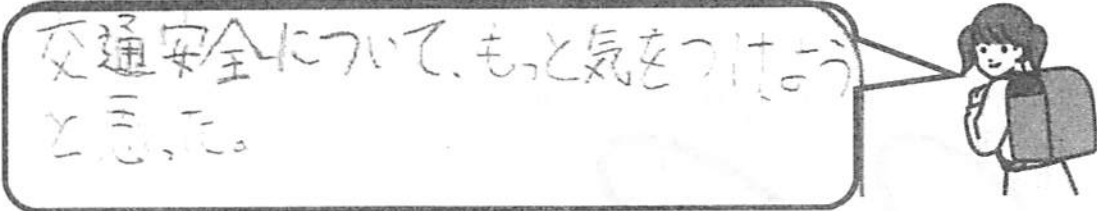 交通安全について、もっと気をつけよう
と言った。